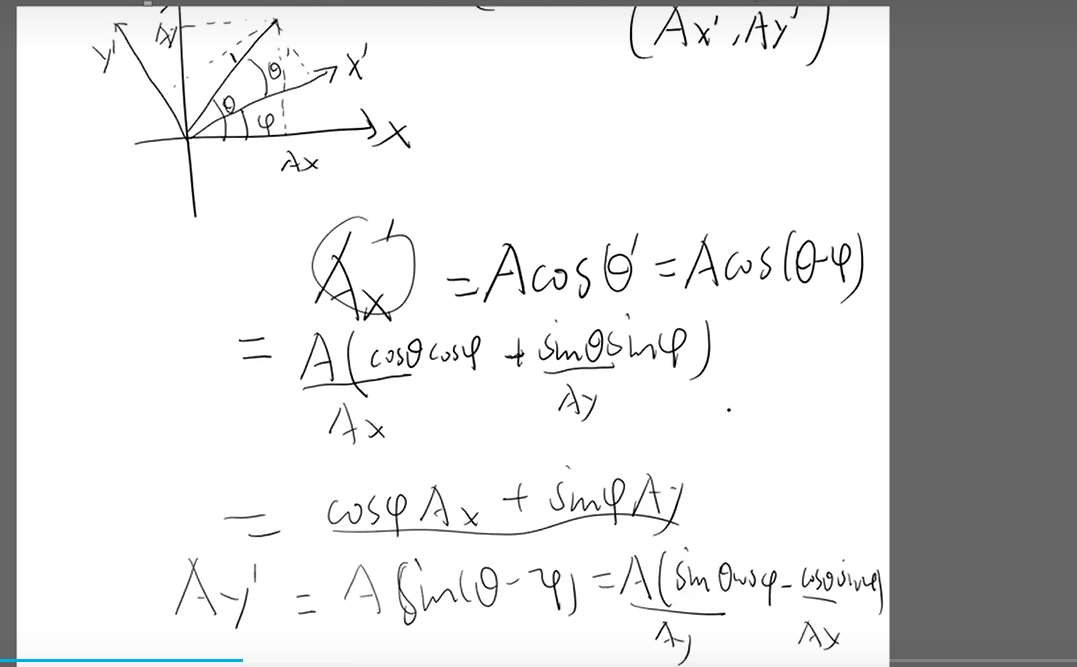 (Ax', Ay')
y' Ay θ' X'
θ φ
X
Ax
Ax' = Acosθ' = Acos(θ-φ)
= A(cosθcosφ + sinθsinφ)
Ax Ay
= cosφAx + sinφAy
Ay' = Asin(θ-φ) = A(sinθcosφ - cosθsinφ)
Ay Ax